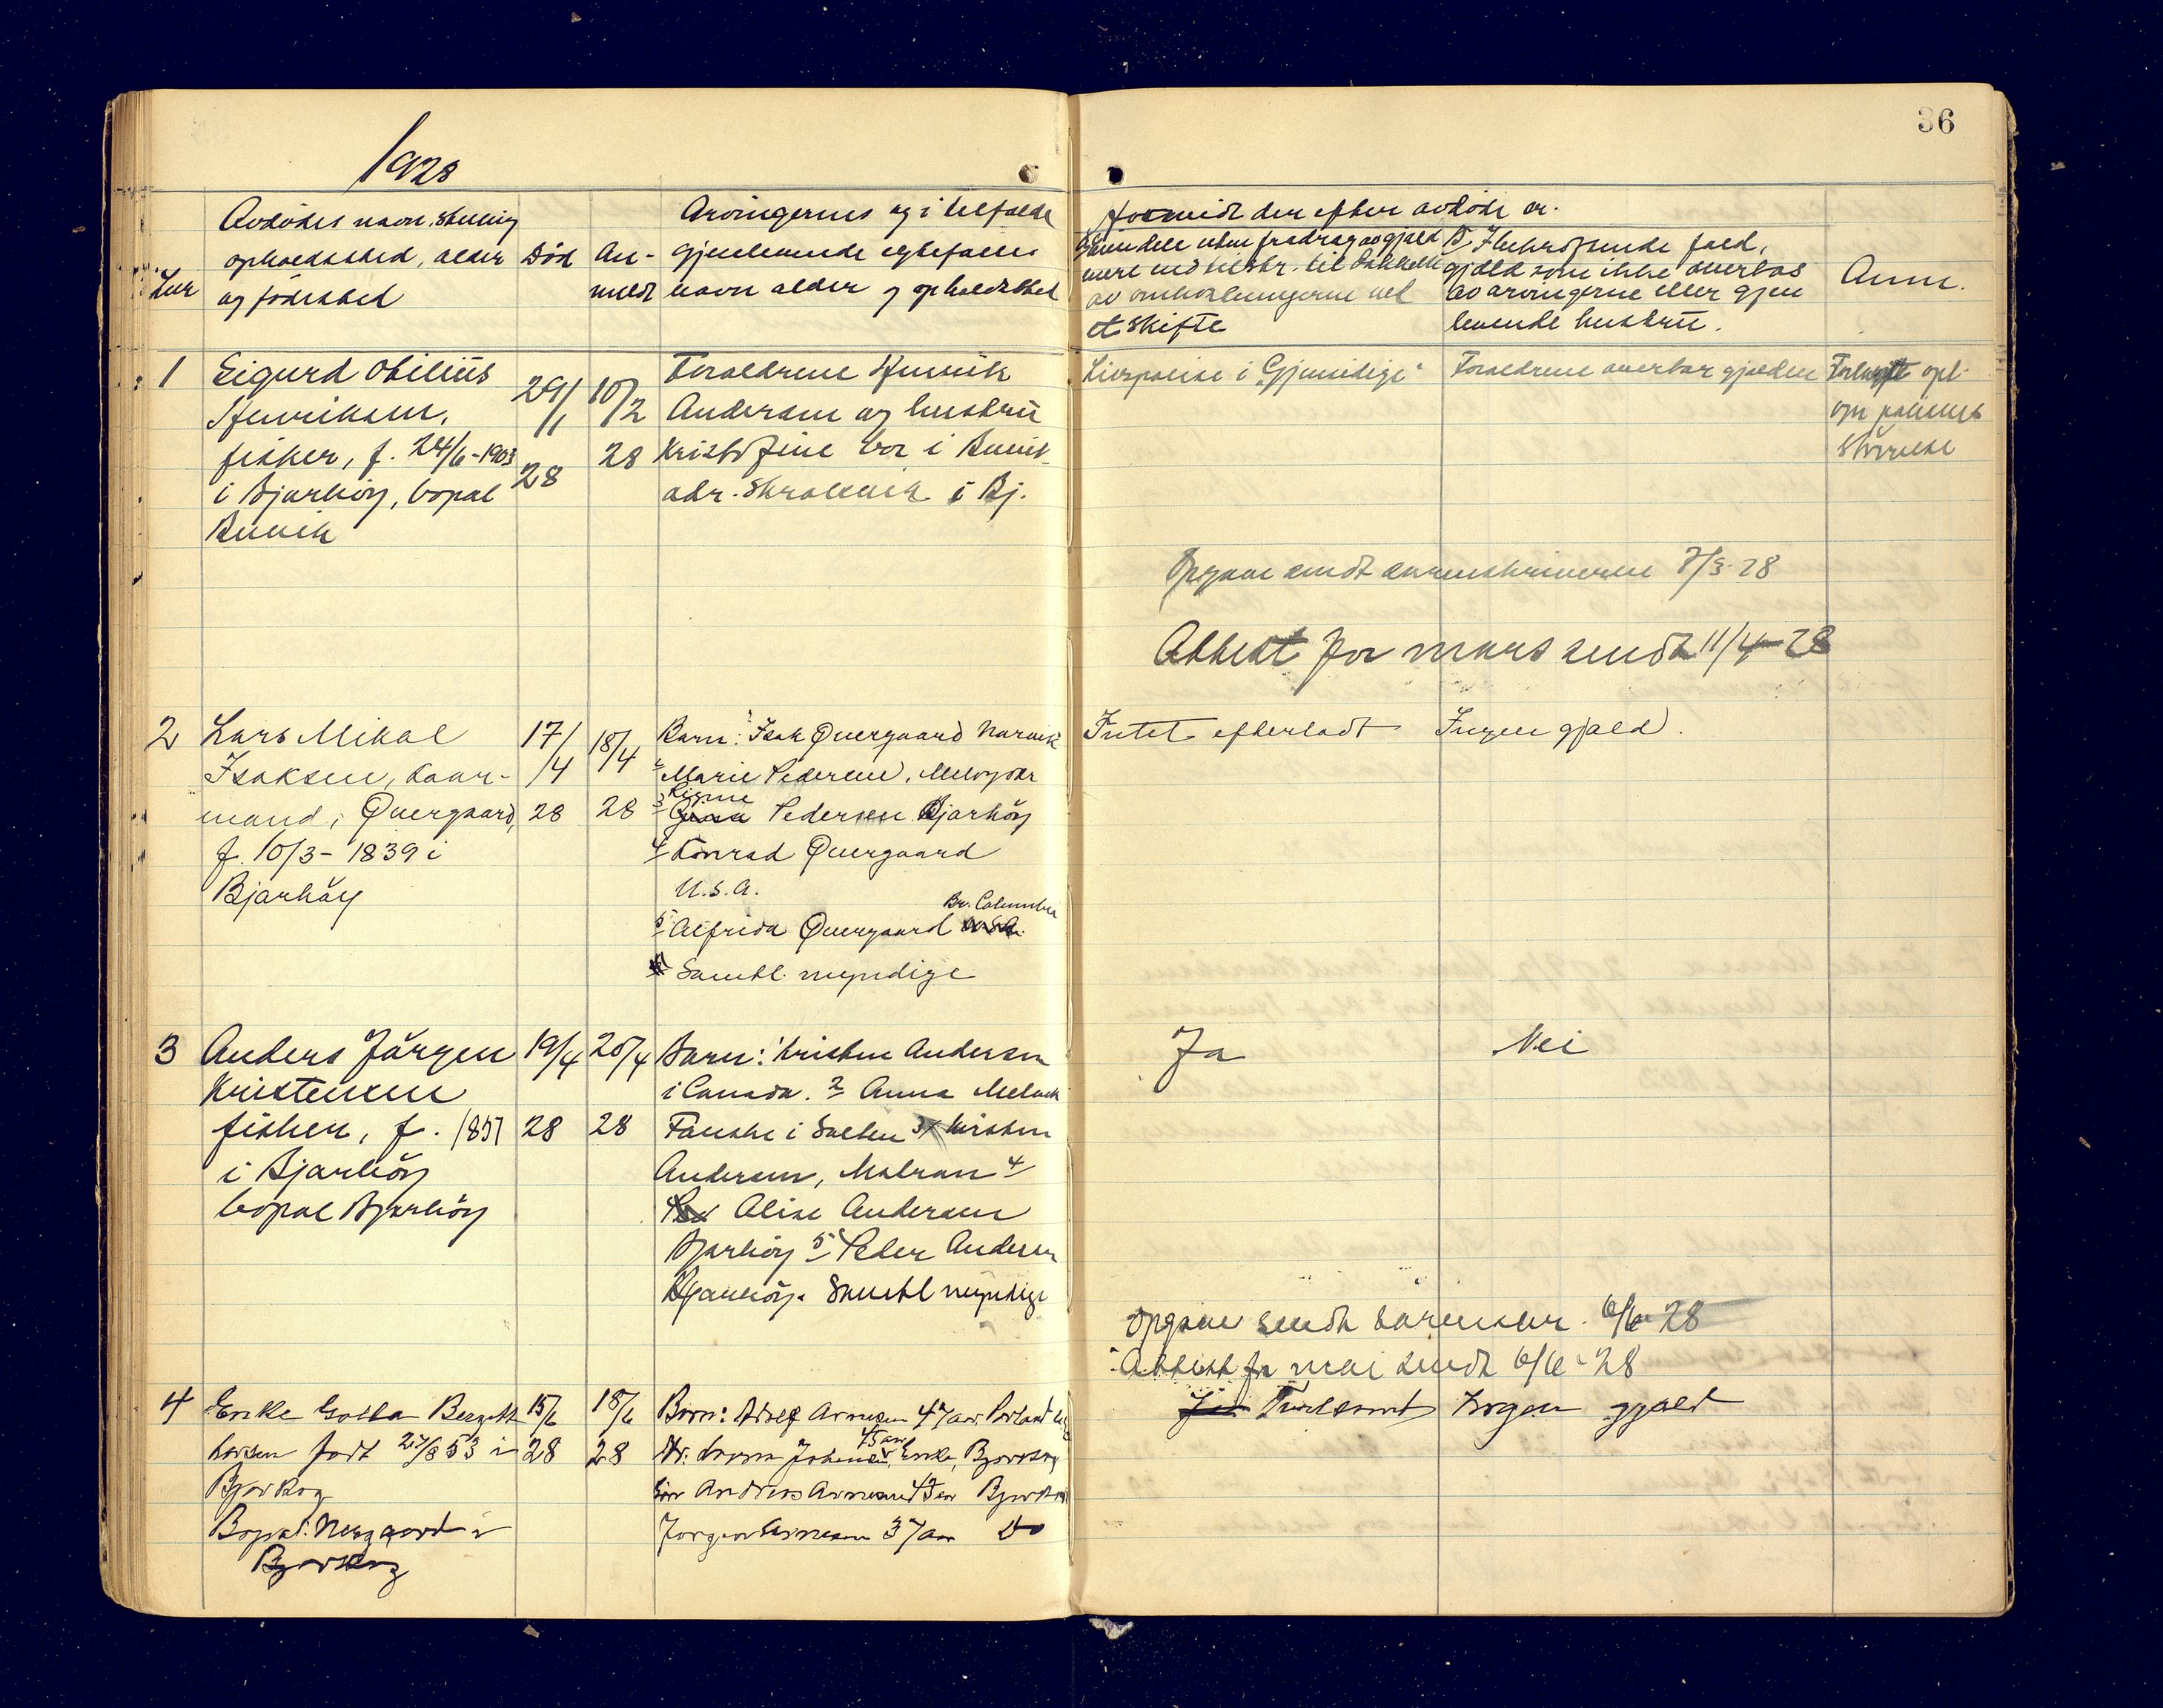 36
1928
Lnr
Avdødes navn, stilling
opholdssted, alder
og fødested
Død
An-
meldt
Arvingernes og i tilfælde
gjenlevende egtefælles
navn alder og opholdssted
formidt den efter avdøde er.
uten fradrag av gjæld
til dækkelse
av omkostningerne ved
et skifte
B. I bekræftende fald,
gjæld som ikke overtas
av arvingerne eller gjen
levende hustru.
Anm.
1
Sigurd Obilius
Henriksen,
fisker, f. 24/6-1903
i Bjarkøy, bopæl
29/1
28
10/2
28
Forældrene Henrik
Andersen og hustru
Kristofine bor i
adr. i Bj.
Livspolise i "Gjensidige"
Forældrene overtar gjælden
Forlangt opl.
om polisens
størrelse
Opgave sendt sorenskriveren 7/3-28
Attest for mars sendt 11/4-28
2
Lars Mikal
Isaksen, kaar-
mand, Øvergaard,
f. 10/3-1839 i
Bjarkøy
17/4
28
18/4
28
Barn: 1 Isak Øvergaard Narvik
2 Marie Pedersen,
Rigme
3 Pedersen Bjarkøy
4 Konrad Øvergaard
U.S.A.
Br. Columbia
5 Alfrida Øvergaard U.S.A.
Samtl. myndige
Intet efterladt
Ingen gjæld.
3
Anders Jørgen
Kristensen
fisker, f. 1857
i Bjarkøy
bopæl Bjarkøy
19/4
28
20/4
28
Barn: 1 Kristen Andersen
i Canada. 2 Anna
Fauske i Salten 3
Andersen, 4
Alise Andersen
Bjarkøy 5 Peder Andersen
Bjarkøy. Samtl myndige
Ja
Nei
Opgave sendt sorenskr. 6/6-28
Attest for mai sendt 6/6-28
4
Enke Golla Bergitte
Larsen født 27/8 53 i
Bjarkøy
Bopæl: Nergaard i
Bjarkøy
15/6
28
18/6
28
Barn: Adolf Arnesen 47 aar,
45 aar
Johansen, Enke, Bjarkøy
Søn Andreas Arnesen 43 aar Bjarkøy
Jørgen Arnesen 37 aar Do
Ingen gjæld